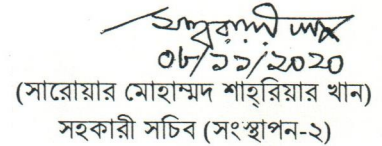 ০৮/১১/২০২০
(সারোয়ার মোহাম্মদ শাহ্‌রিয়ার খান)
সহকারী সচিব (সংস্থাপন-২)